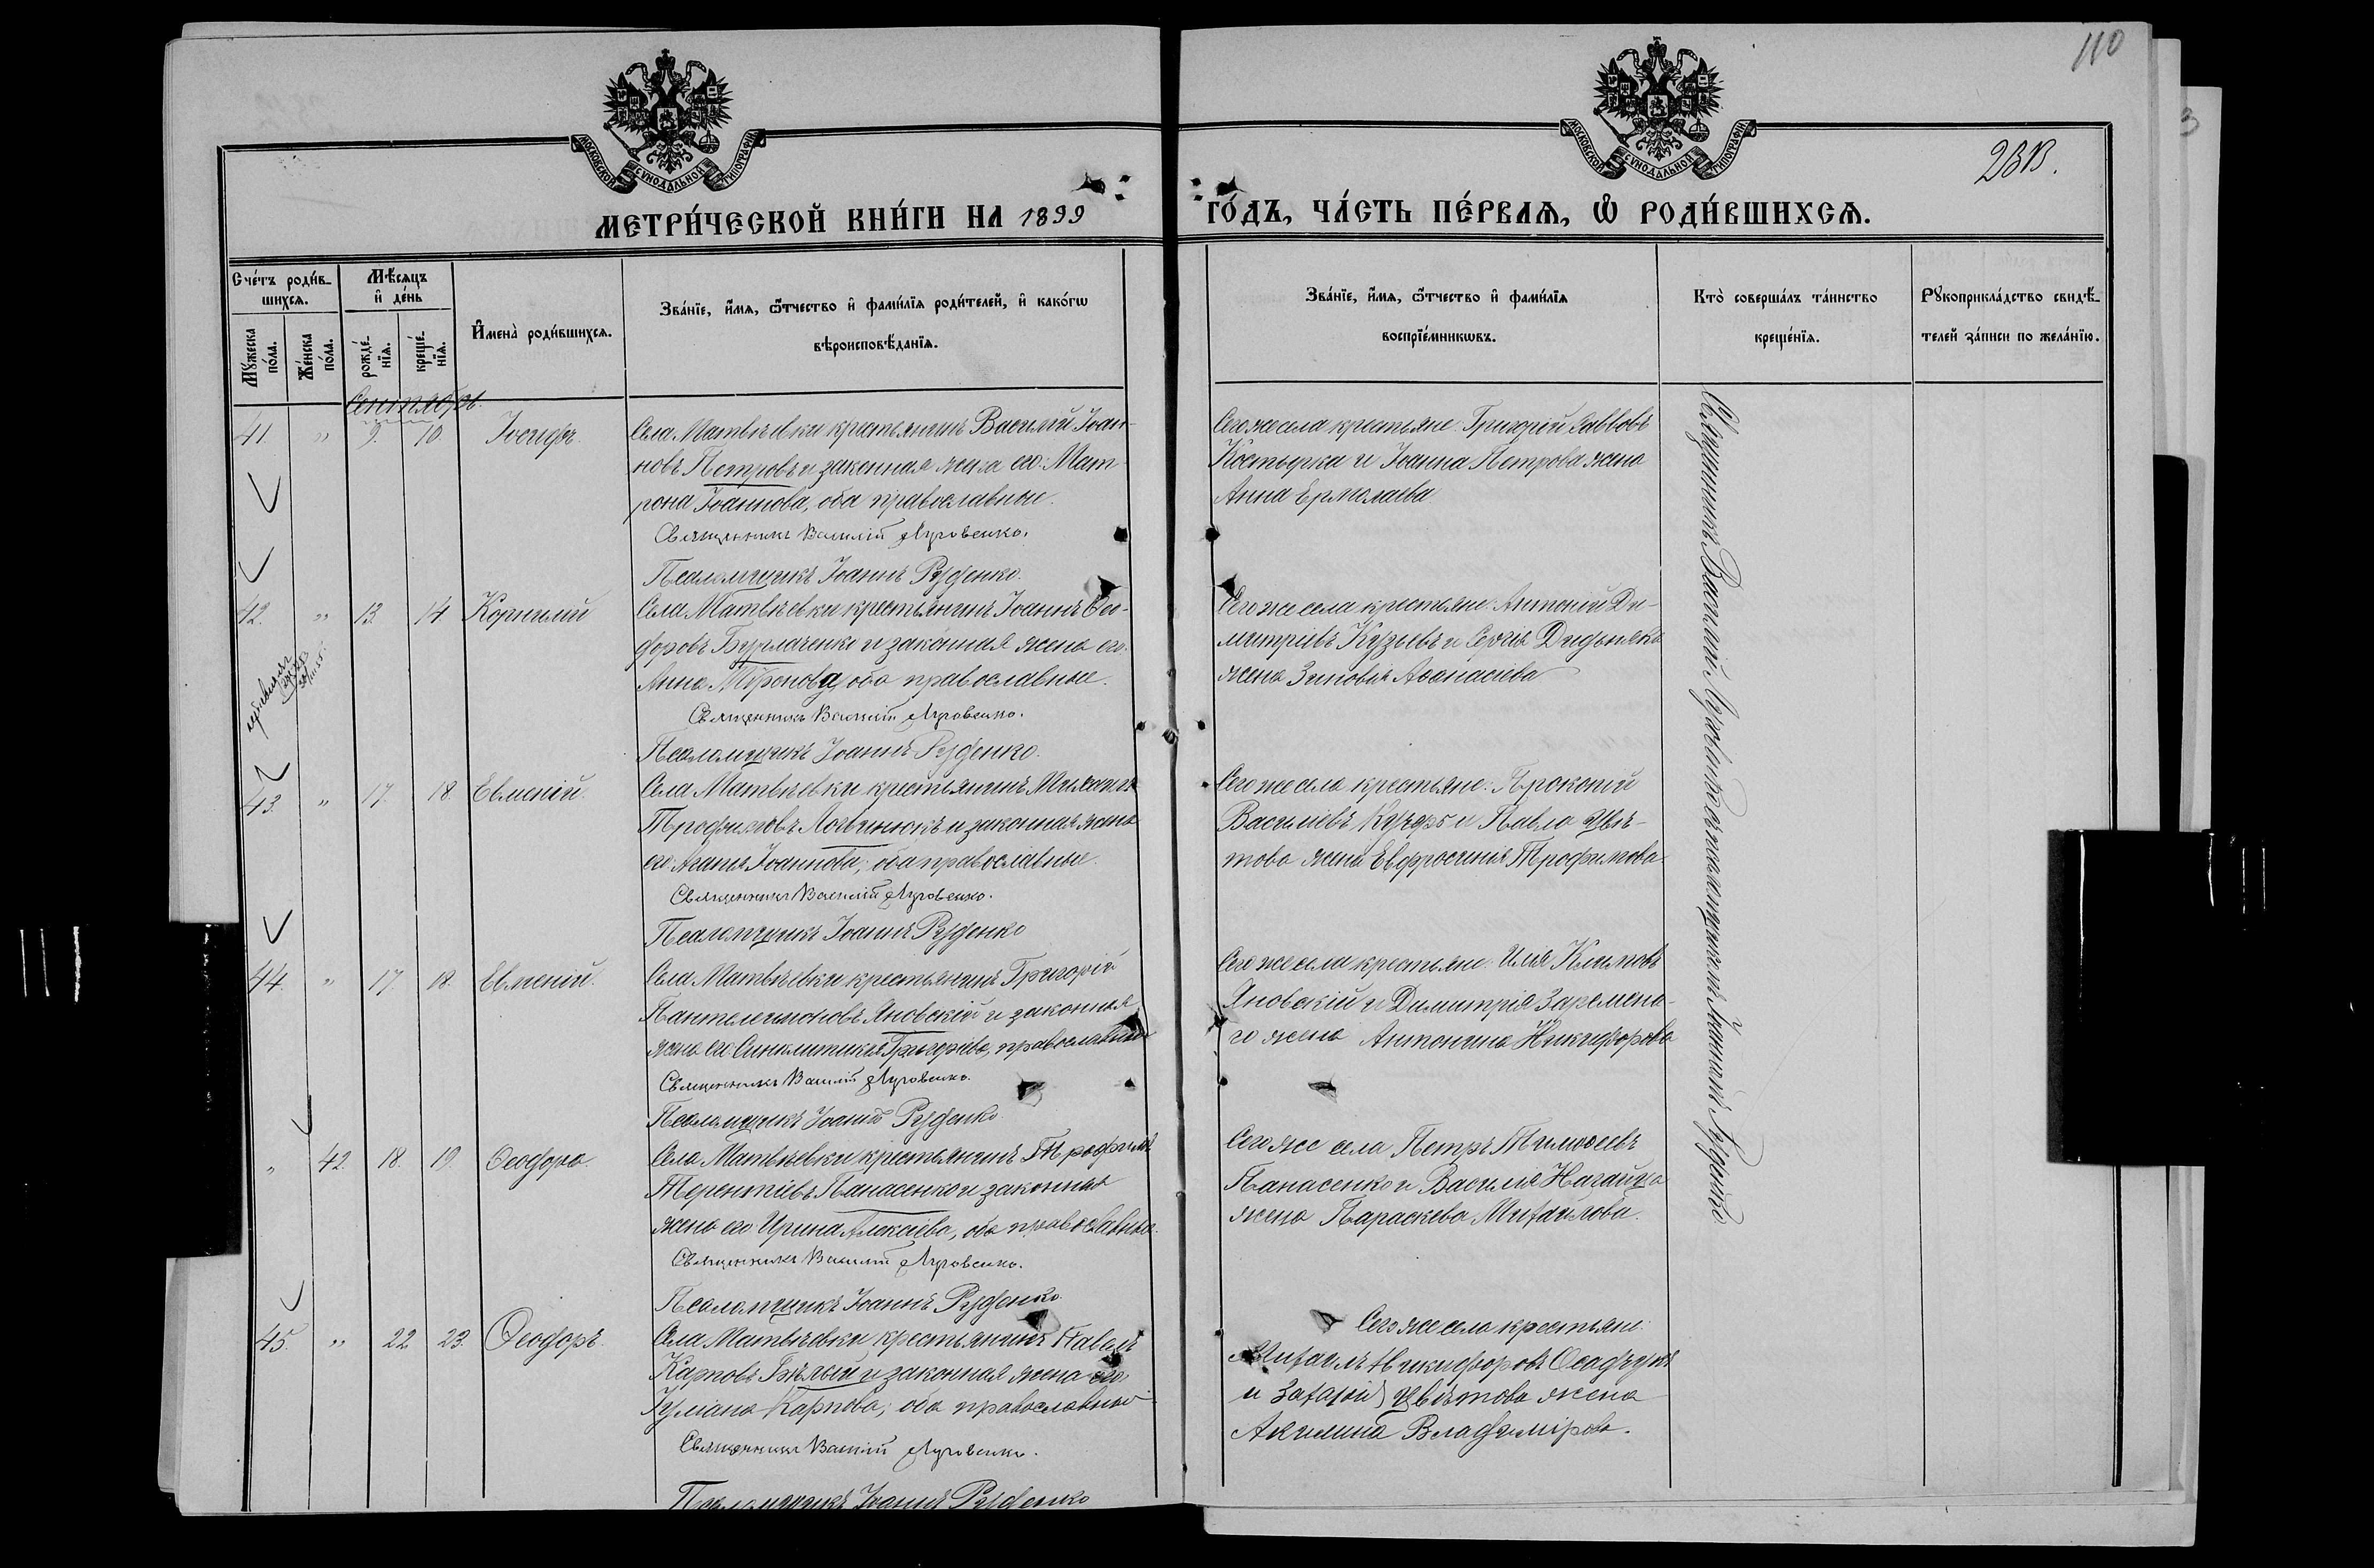 110
МОСКОВСКОЙ СУНОДАЛЬНОЙ ТИПОГРАФІИ
МОСКОВСКОЙ СУНОДАЛЬНОЙ ТИПОГРАФІИ
МЕТРИ́ЧЕСКОЙ КНИ́ГИ НА 1899
ГО́ДЪ, ЧА́СТЬ ПЕ́РВАѦ, Ѿ РОДИ́ВШИХСѦ.
Сче́тъ роди́в-
шихсѧ.
Мꙋ́жеска
по́ла.
Же́нска
по́ла.
Мѣ́сѧцъ
и҆ де́нь
рожде́-
нїѧ.
креще́-
нїѧ.
И҆мена̀ роди́вшихсѧ.
Зва́нїе, и҆́мѧ, ѻ҆́тчество и҆ фами́лїѧ роди́телей, и҆ како́гѡ
вѣроисповѣ́данїѧ.
Зва́нїе, и҆́мѧ, ѻ҆́тчество и҆ фами́лїѧ
воспрїе́мникѡвъ.
Кто̀ соверша́лъ та́инство
креще́нїѧ.
Рꙋкоприкла́дство свидѣ́-
телей за́писи по жела́нїю.
Сентябрь.
41. " 9. 10. Іосифъ.
Села Матвѣевки крестьянинъ Василій Іоан-
новъ Петровъ и законная жена его: Мат-
рона Іоаннова, оба православные.
Священникъ Василій Луговенко.
Псаломщикъ Іоаннъ Руденко.
Сего же села крестьяне: Григорій Савовъ
Костырка и Іоанна Петрова жена
Анна Ермолаева
42. " 13. 14 Корнилий
Села Матвѣевки крестьянинъ Іоаннъ Ѳео-
доровъ Бурлаченко и законная жена его:
Анна оба православные.
Священникъ Василій Луговенко.
Псаломщикъ Іоаннъ Руденко.
Сего же села крестьяне: Антоній Ди-
митріевъ и Сергія
жена Зиновія Аѳанасіева
43. " 17. 18. Евмений.
Села Матвѣевки крестьянинъ
Трофимовъ Логвинюкъ и законная жена
его Агапія Іоаннова, оба православные.
Священникъ Василій Луговенко.
Псаломщикъ Іоаннъ Руденко
Сего же села крестьяне: Прокопій
Василіевъ и Павла Цвѣ-
това жена Евфросинія Трофимова
44. " 17. 18. Евмений.
Села Матвѣевки крестьянинъ Григорій
Пантелеимоновъ Яновскій и законная
жена его Синклитикія Григоріева, православные
Священникъ Василій Луговенко.
Псаломщикъ Іоаннъ Руденко
Сего же села крестьяне: Илія Климовъ
Яновскій и Димитрія Заремена-
го жена Антонина Никифорова
" 42. 18. 19. Ѳеодора.
Села Матвѣевки крестьянинъ Трофимъ
Терентіевъ Панасенко и законная
жена его Ирина Алексѣева, оба православные.
Священникъ Василій Луговенко.
Псаломщикъ Іоаннъ Руденко.
Сего же села Петръ Тимоѳеевъ
Панасенко и Василія Нагайца
жена Параскева Михаилова.
45. " 22 23. Ѳеодоръ.
Села Матвѣевки крестьянинъ Павелъ
Карповъ Бѣлый и законная жена его
Іуліана Карпова, оба православные
Священникъ Василій Луговенко.
Псаломщикъ Іоаннъ Руденко
Сего же села крестьяне:
Михаилъ Никифоровъ
и Захарія Цвѣтова жена
Акилина Владимірова.
Священникъ Василій Луговенко съ псаломщикомъ Іоанномъ Руденко